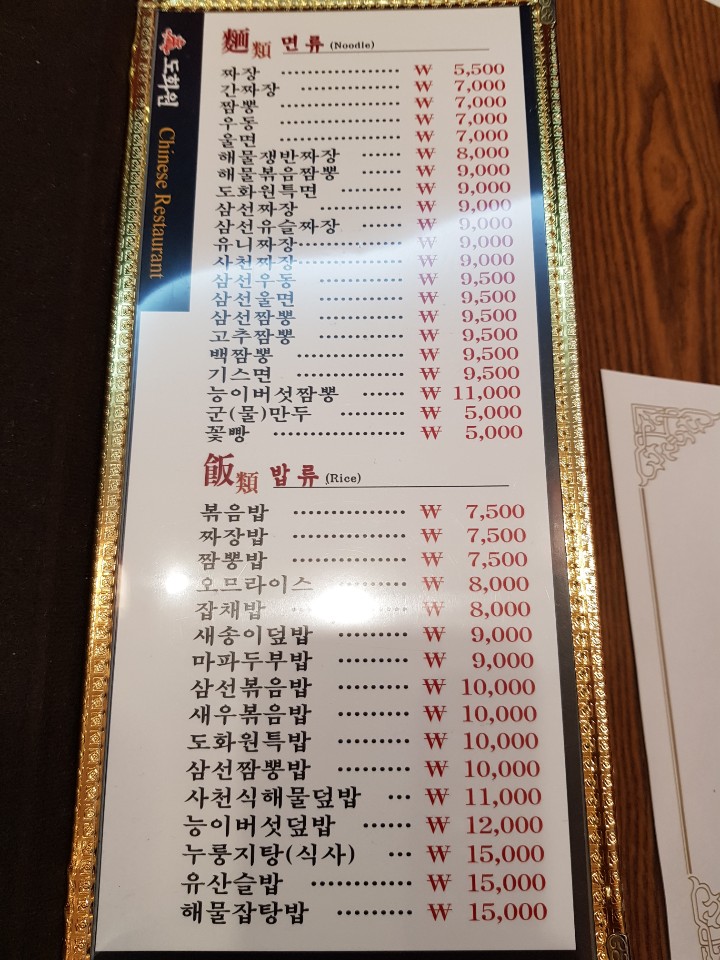 도화원 Chinese Restaurant
麵類 면류 (Noodle)
짜장 ₩ 5,500
간짜장 ₩ 7,000
짬뽕 ₩ 7,000
우동 ₩ 7,000
울면 ₩ 7,000
해물쟁반짜장 ₩ 8,000
해물볶음짬뽕 ₩ 9,000
도화원특면 ₩ 9,000
삼선짜장 ₩ 9,000
삼선유슬짜장 ₩ 9,000
유니짜장 ₩ 9,000
사천짜장 ₩ 9,000
삼선우동 ₩ 9,500
삼선울면 ₩ 9,500
삼선짬뽕 ₩ 9,500
고추짬뽕 ₩ 9,500
백짬뽕 ₩ 9,500
기스면 ₩ 9,500
능이버섯짬뽕 ₩ 11,000
군(물)만두 ₩ 5,000
꽃빵 ₩ 5,000
飯類 밥류 (Rice)
볶음밥 ₩ 7,500
짜장밥 ₩ 7,500
짬뽕밥 ₩ 7,500
오므라이스 ₩ 8,000
잡채밥 ₩ 8,000
새송이덮밥 ₩ 9,000
마파두부밥 ₩ 9,000
삼선볶음밥 ₩ 10,000
새우볶음밥 ₩ 10,000
도화원특밥 ₩ 10,000
삼선짬뽕밥 ₩ 10,000
사천식해물덮밥 ₩ 11,000
능이버섯덮밥 ₩ 12,000
누룽지탕(식사) ₩ 15,000
유산슬밥 ₩ 15,000
해물잡탕밥 ₩ 15,000